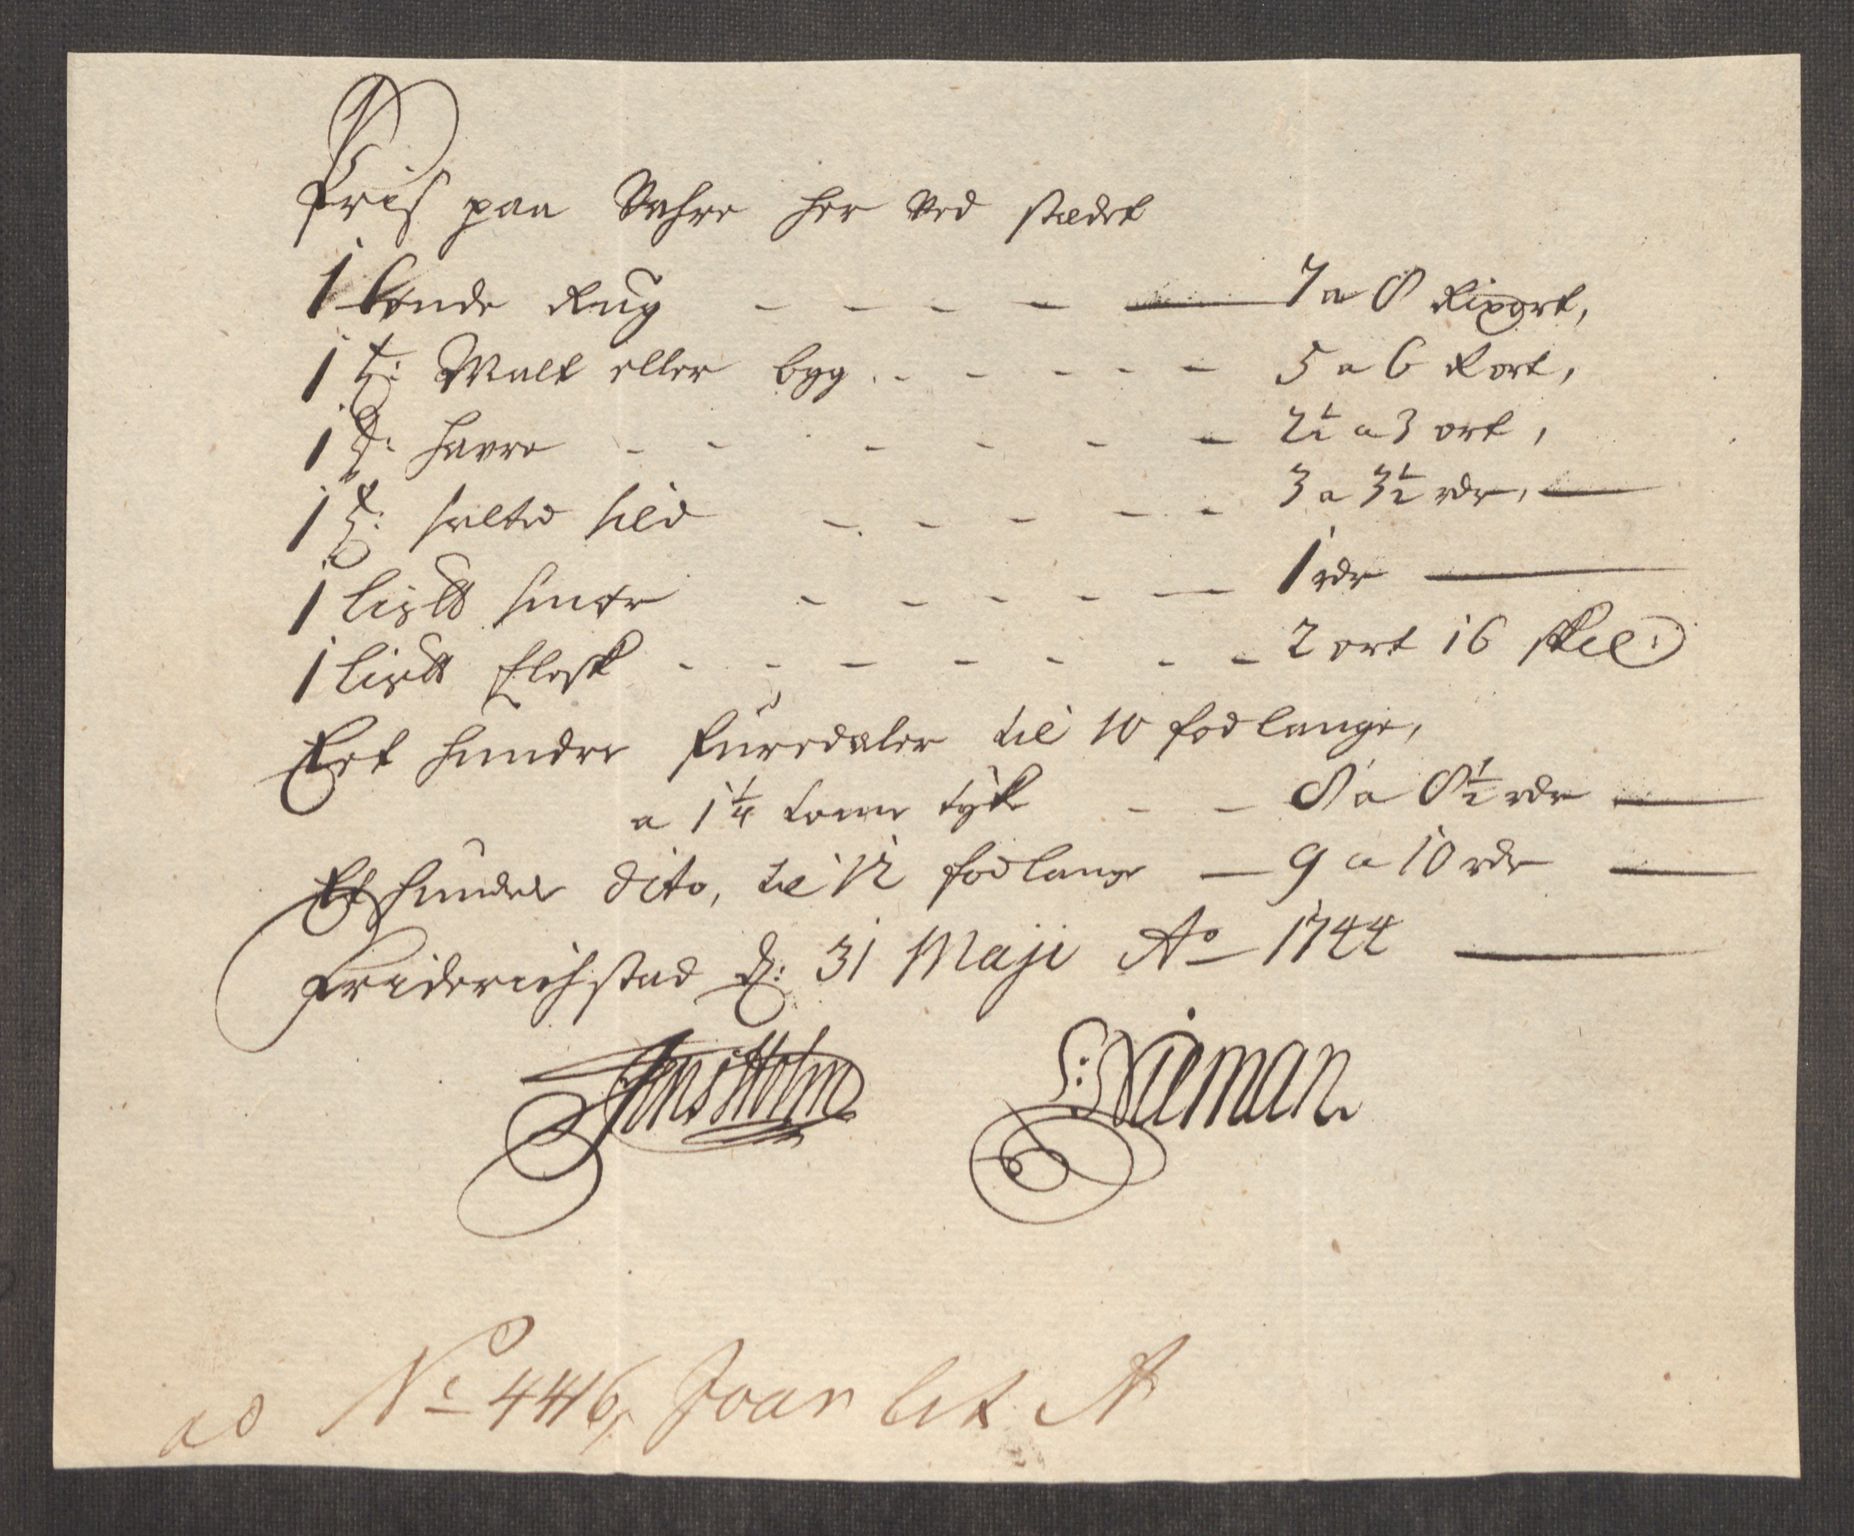 Pris paa Vahre her ved stædet
1 tønde Rug - - - - 7 a 8 Rixort,
1 t: Malt eller byg - - - - - 5 a 6 Rort,
1 t: havre - - - - - - - 2½ a 3 ort,
1 t: salted sild - - - - - 3 a 3½ rdr,
1 lis℔ smør - - - - - 1 rdr
1 lis℔ flesk - - - - - - - 2 ort 16 skil:
Eet hundre furedæler til 10 fod lange,
a 1¼ tome tyk - - 8 a 8½ rdr
Et hundre dito, til 12 fod lange - 9 a 10 rdr
Friderichstad d: 31 Maji Ao 1744
Jens Holm
Nieman
ad No 4416, Joar lit A